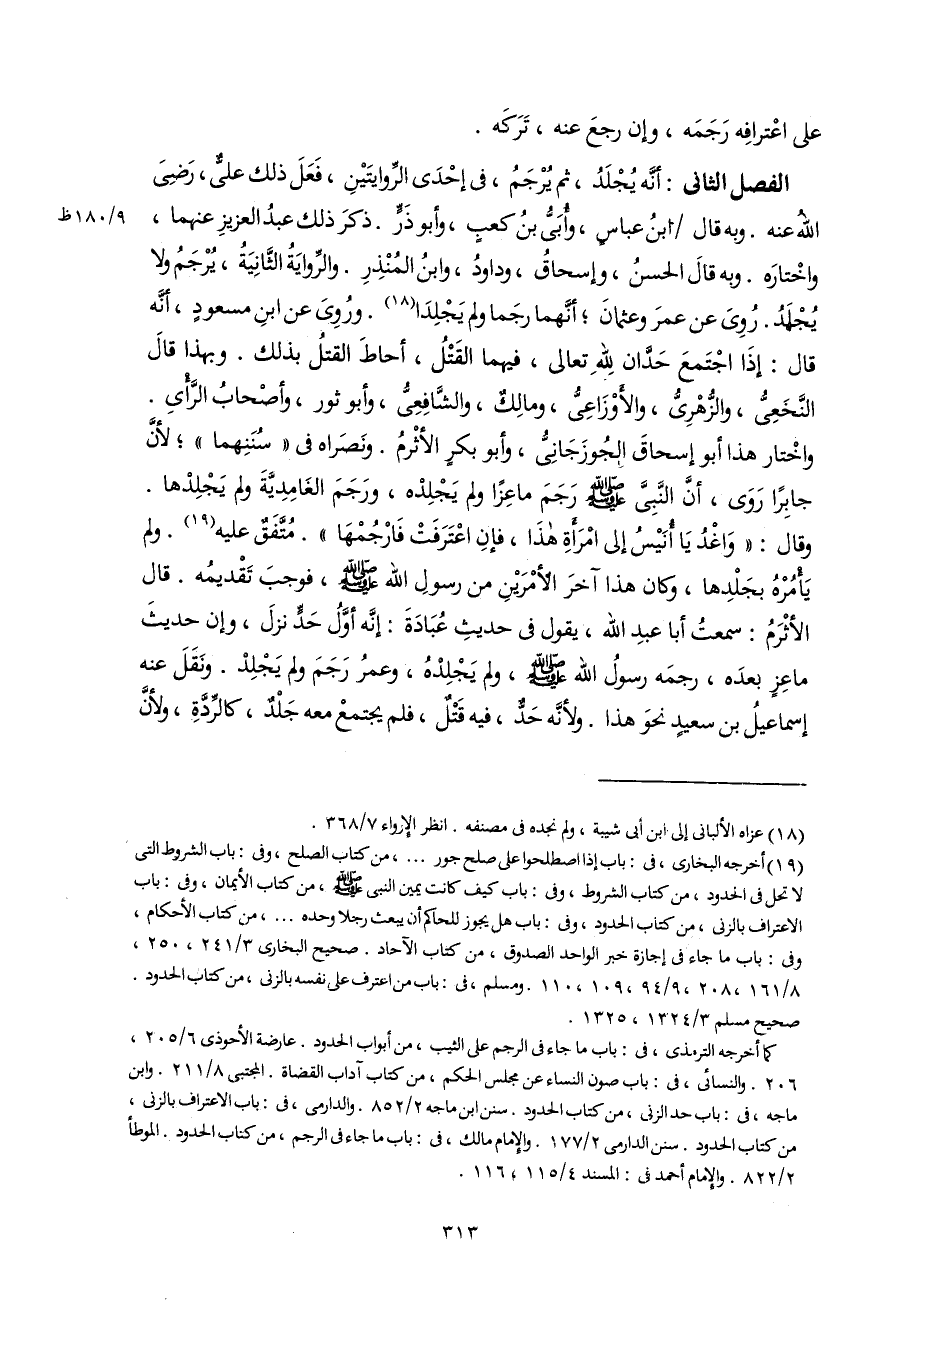 على اعْترافِه رَجَمَه ، وإن رجعَ عنه ، تَرَكَه .
الفصل الثانى : أنَّه يُجْلَدُ ، ثم يُرْجَمُ ، فى إحْدَى الرِّوايتَيْنِ ، فَعَلَ ذلك علىٌّ، رَضِىَ
اللهُ عنه . وبه قال /ابنُ عباسٍ ، وأُبَىُّ بنُ كعبٍ ، وأبو ذَرٍّ . ذكرَ ذلك عبدُ العزيزِ عنهما ، ١٨٠/٩ظ
واخْتارَه . وبه قالَ الحسنُ ، وإسحاقُ ، وداودُ ، وابنُ المُنْذِرِ . والرِّوايةُ الثَّانِيَةُ ، يُرْجَمُ ولا
يُجْلَدُ . رُوِىَ عن عمرَ وعثمانَ ؛ أنَّهما رجما ولم يَجْلِدَا(١٨) . ورُوِىَ عن ابنِ مسعودٍ ، أنَّه
قال : إذَا اجْتمعَ حَدَّان للهِ تعالى ، فيهما القَتْلُ ، أحاطَ القتلُ بذلك . وبهذا قالَ
النَّخَعِىُّ ، والزُّهْرِىُّ ، والأَوْزَاعِىُّ ، ومالِكٌ ، والشَّافِعِىُّ ، وأبو ثور ، وأصْحابُ الرَّأْىِ .
واخْتار هذا أبو إسحاق الجُوزَجَانِىُّ ، وأبو بكرٍ الأثْرمُ . ونَصَراه فى « سُنَنِهما » ؛ لأنَّ
جابِرًا رَوَى ، أنَّ النَّبِىَّ ﷺ رَجَمَ ماعِزًا ولم يَجْلِدْه ، ورَجَمَ الغَامِدِيَّةَ ولم يَجْلِدْها .
وقال : « وَاغْدُ يَا أُنَيْسُ إلى امْرَأَةِ هٰذَا ، فإنِ اعْتَرَفَتْ فَارْجُمْهَا » . مُتَّفَقٌ عليه(١٩) . ولم
يَأْمُرْهُ بجَلْدِها ، وكان هذا آخرَ الأمْرَيْنِ من رسولِ الله ﷺ ، فوجبَ تَقْديمُه . قال
الأثْرَمُ : سمعتُ أبا عبدِ الله ، يقول فى حديثِ عُبَادَةَ : إنَّه أوَّلُ حَدٍّ نزلَ ، وإن حديثَ
ماعِزٍ بعدَه ، رجمَه رسولُ الله ﷺ ، ولم يَجْلِدْهُ ، وعمرُ رَجَمَ ولم يَجْلِدْ . ونَقَلَ عنه
إسماعيلُ بن سعيدٍ نحوَ هذا . ولأنَّه حَدٌّ ، فيه قَتْلٌ ، فلم يجتمعْ معه جَلْدٌ ، كالرِّدَّةِ ، ولأنَّ
(١٨) عزاه الألبانى إلى ابن أبى شيبة ، ولم نجده فى مصنفه . انظر الإرواء ٣٦٨/٧ .
(١٩) أخرجه البخارى ، فى : باب إذا اصطلحوا على صلح جور ... ، من كتاب الصلح ، وفى : باب الشروط التى
لا تحل فى الحدود ، من كتاب الشروط ، وفى : باب كيف كانت يمين النبى ﷺ ، من كتاب الأيمان ، وفى : باب
الاعتراف بالزنى ، من كتاب الحدود ، وفى : باب هل يجوز للحاكم أن يبعث رجلا وحده ... ، من كتاب الأحكام ،
وفى : باب ما جاء فى إجازة خبر الواحد الصدوق ، من كتاب الآحاد . صحيح البخارى ٢٤١/٣ ، ٢٥٠ ،
١٦١/٨ ، ٢٠٨ ، ٩٤/٩ ، ١٠٩ ، ١١٠ . ومسلم ، فى : باب من اعترف على نفسه بالزنى ، من كتاب الحدود .
صحيح مسلم ١٣٢٤/٣ ، ١٣٢٥ .
كما أخرجه الترمذى ، فى : باب ما جاء فى الرجم على الثيب ، من أبواب الحدود . عارضة الأحوذى ٢٠٥/٦ ،
٢٠٦ . والنسائى ، فى : باب صون النساء عن مجلس الحكم ، من كتاب آداب القضاة . المجتبى ٢١١/٨ . وابن
ماجه ، فى : باب حد الزنى ، من كتاب الحدود . سنن ابن ماجه ٨٥٢/٢ . والدارمى ، فى : باب الاعتراف بالزنى ،
من كتاب الحدود . سنن الدارمى ١٧٧/٢ . والإمام مالك ، فى : باب ما جاء فى الرجم ، من كتاب الحدود . الموطأ
٨٢٢/٢ . والإمام أحمد فى : المسند ١١٥/٤ ، ١١٦ .
٣١٣